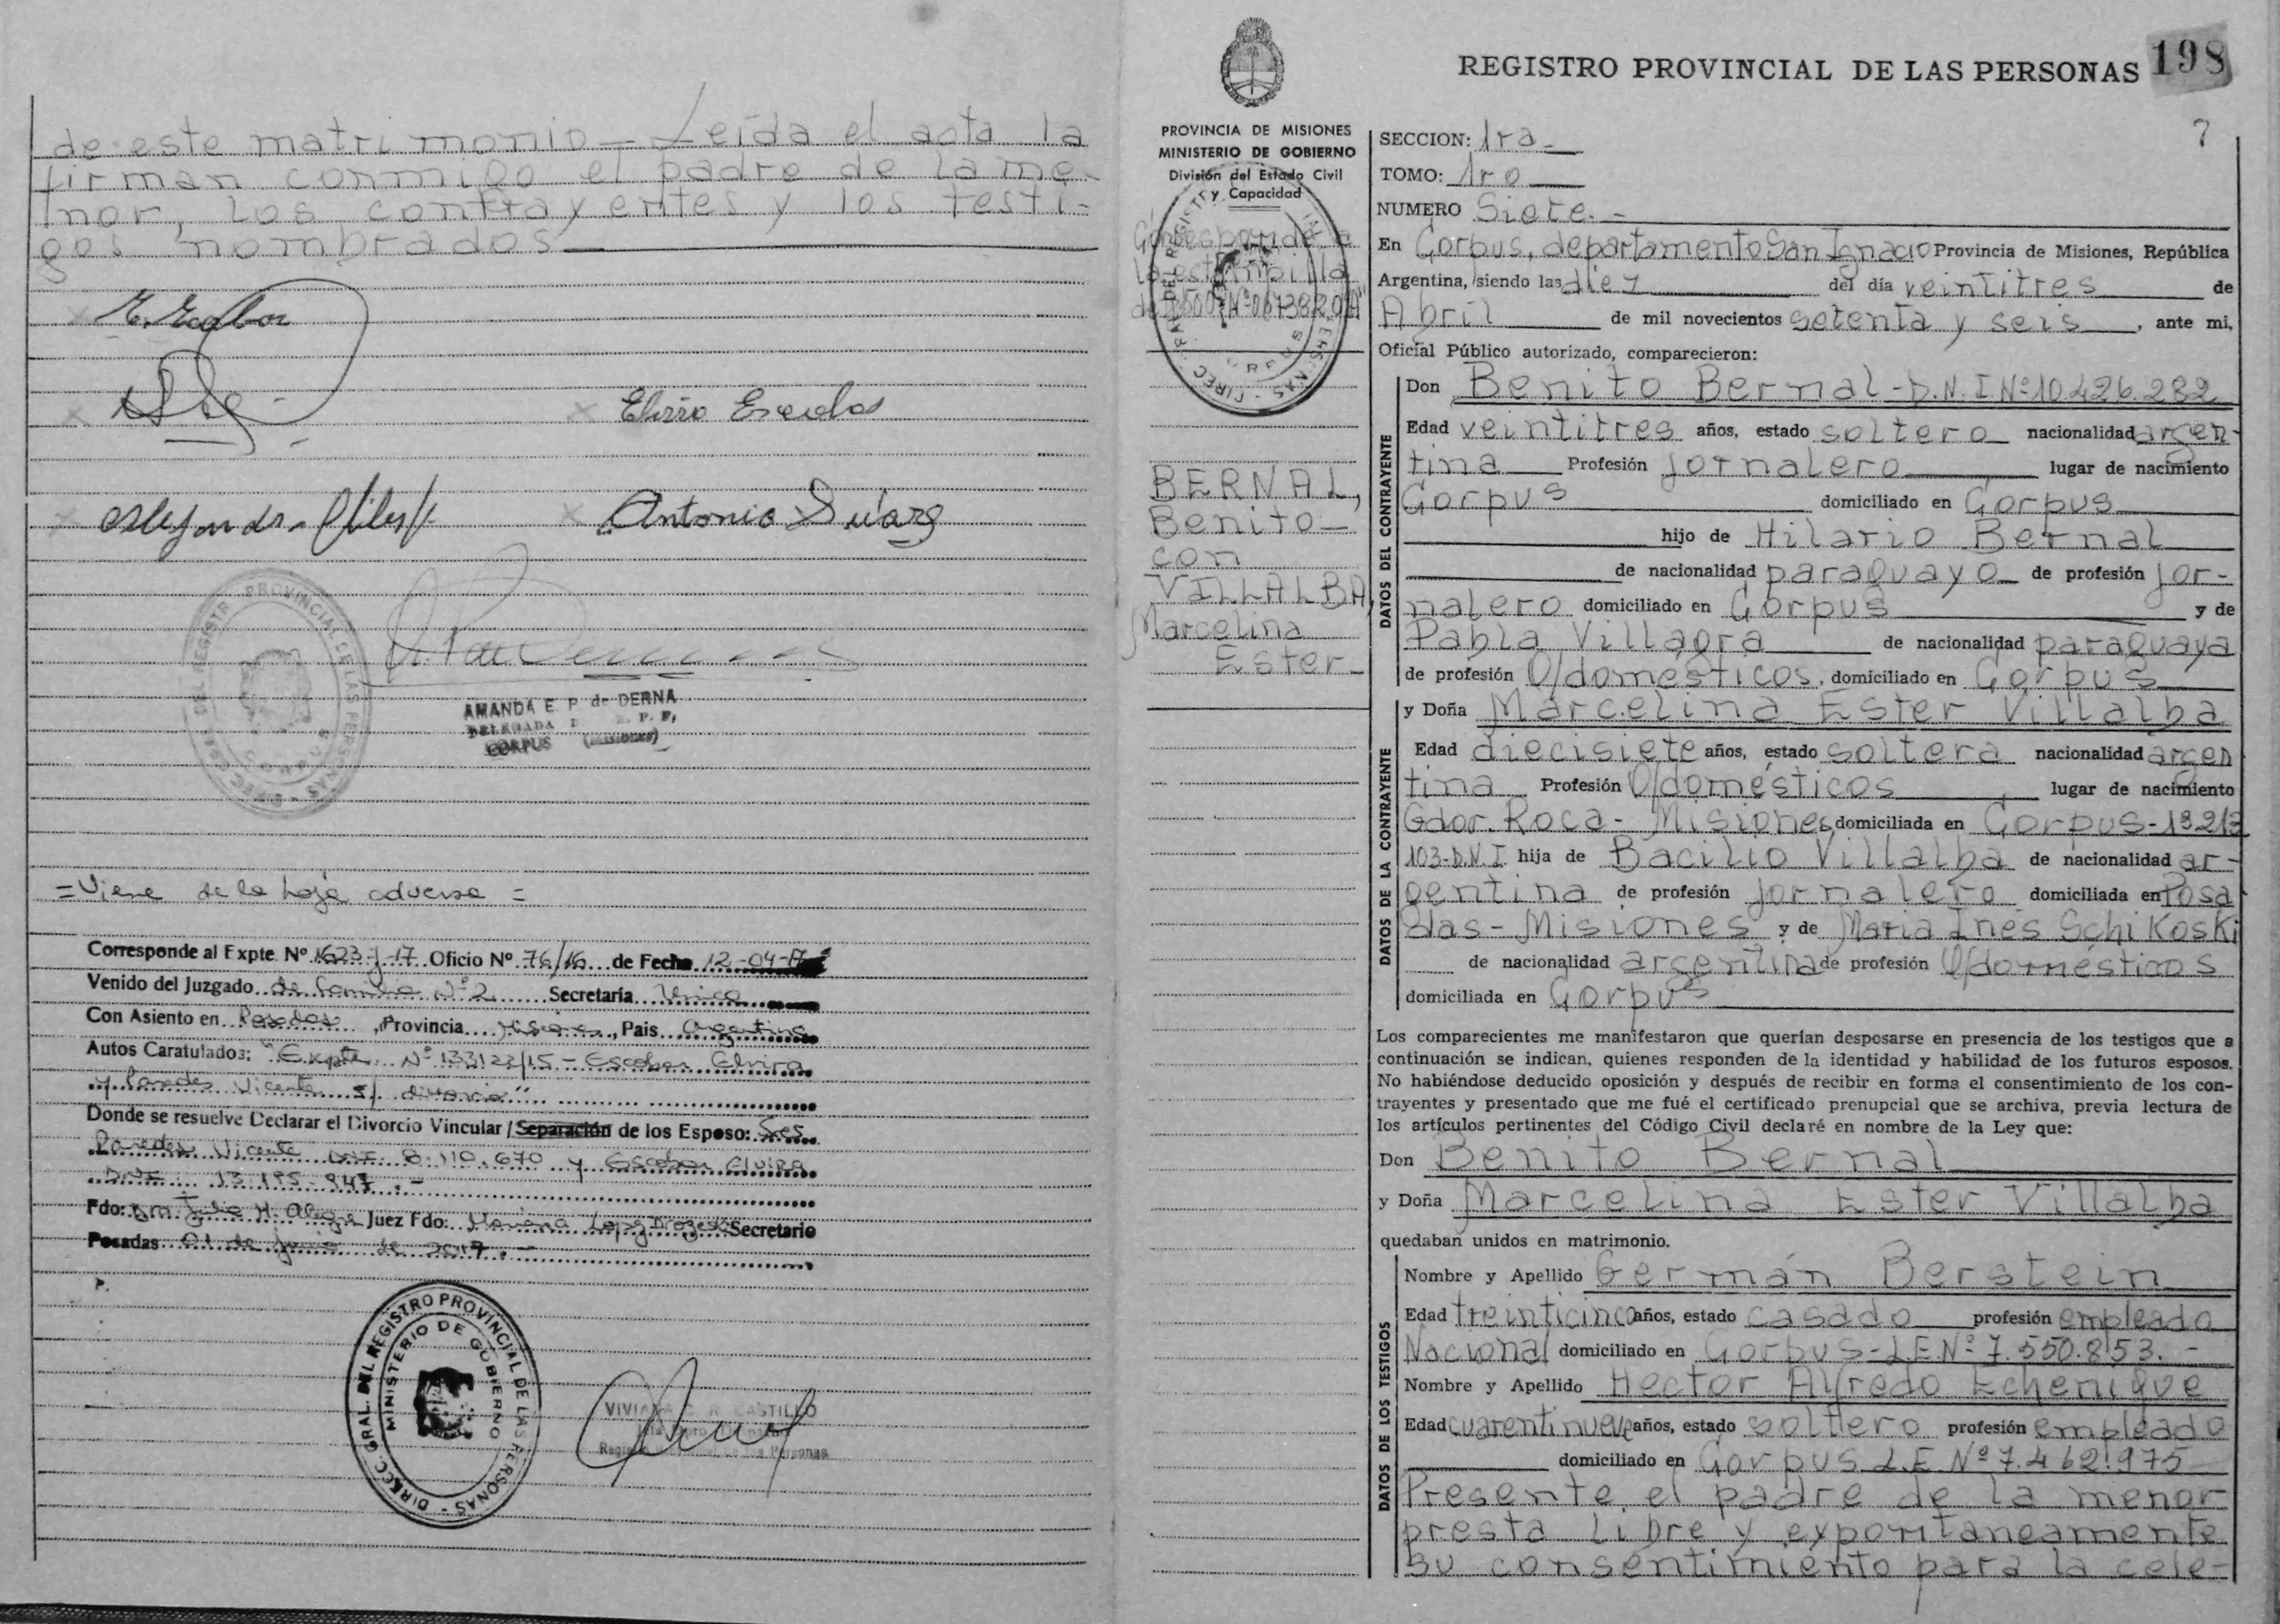 de este matrimonio — Leída el acta la
firman conmigo el padre de la me-
nor, los contrayentes y los testi-
gos nombrados
Elvira Escobar
Antonio Suarez
AMANDA E. P. de DERNA
DELEGADA R. P. P.
CORPUS (MISIONES)
DIREC. GRAL. DEL REGISTRO PROVINCIAL DE LAS PERSONAS
= Viene de la hoja adversa =
Corresponde al Expte. Nº 1623-J-17 Oficio Nº 76/16 de Fecha 12-04-17
Venido del Juzgado de Familia Nº 2 Secretaría Unica
Con Asiento en Posadas, Provincia Misiones, Pais Argentina
Autos Caratulados: "Expte. Nº 133122/15 - Escobar Elvira
y Paredes Vicente s/ divorcio"
Donde se resuelve Declarar el Divorcio Vincular / Separación de los Esposo: Sres.
Paredes Vicente DNI: 8.110.670 y Escobar Elvira
DNI: 13.195.947.-
Fdo: Juez Fdo: Mariana Lopez Secretario
Posadas 01 de junio de 2017.-
DIREC. GRAL. DEL REGISTRO PROVINCIAL DE LAS PERSONAS
MINISTERIO DE GOBIERNO
VIVIANA R. CASTILLO
REGISTRO PROVINCIAL DE LAS PERSONAS 198
7
PROVINCIA DE MISIONES
MINISTERIO DE GOBIERNO
División del Estado Civil
y Capacidad
Corresponde a
la estampilla
BERNAL,
Benito-
con
VILLALBA,
Marcelina
Ester-
SECCION: 1ra-
TOMO: 1ro
NUMERO Siete.-
En Corpus, departamento San Ignacio Provincia de Misiones, República
Argentina, siendo las diez del día veintitres de
Abril de mil novecientos setenta y seis, ante mi,
Oficial Público autorizado, comparecieron:
DATOS DEL CONTRAYENTE
Don Benito Bernal - D.N.I Nº 10.426.282
Edad veintitres años, estado soltero nacionalidad argen-
tina Profesión jornalero lugar de nacimiento
Corpus domiciliado en Corpus
hijo de Hilario Bernal
de nacionalidad paraguayo de profesión jor-
nalero domiciliado en Corpus y de
Pabla Villagra de nacionalidad paraguaya
de profesión Q/domésticos, domiciliado en Corpus
DATOS DE LA CONTRAYENTE
y Doña Marcelina Ester Villalba
Edad diecisiete años, estado soltera nacionalidad argen
tina Profesión Q/domésticos lugar de nacimiento
Gdor. Roca - Misiones domiciliada en Corpus - 13213
103-D.N.I. hija de Bacilio Villalba de nacionalidad ar-
gentina de profesión jornalero domiciliada en Posa
das - Misiones y de Maria Inés Schikoski
de nacionalidad argentina de profesión Q/domésticos
domiciliada en Corpus
Los comparecientes me manifestaron que querían desposarse en presencia de los testigos que a
continuación se indican, quienes responden de la identidad y habilidad de los futuros esposos.
No habiéndose deducido oposición y después de recibir en forma el consentimiento de los con-
trayentes y presentado que me fué el certificado prenupcial que se archiva, previa lectura de
los artículos pertinentes del Código Civil declaré en nombre de la Ley que:
Don Benito Bernal
y Doña Marcelina Ester Villalba
quedaban unidos en matrimonio.
DATOS DE LOS TESTIGOS
Nombre y Apellido Germán Berstein
Edad treinticinco años, estado casado profesión empleado
Nacional domiciliado en Corpus - L.E Nº 7.550.853. -
Nombre y Apellido Hector Alfredo Echenique
Edad cuarentinueve años, estado soltero profesión empleado
domiciliado en Corpus L.E Nº 7.462.975
Presente, el padre de la menor
presta libre y expontaneamente
su consentimiento para la cele-